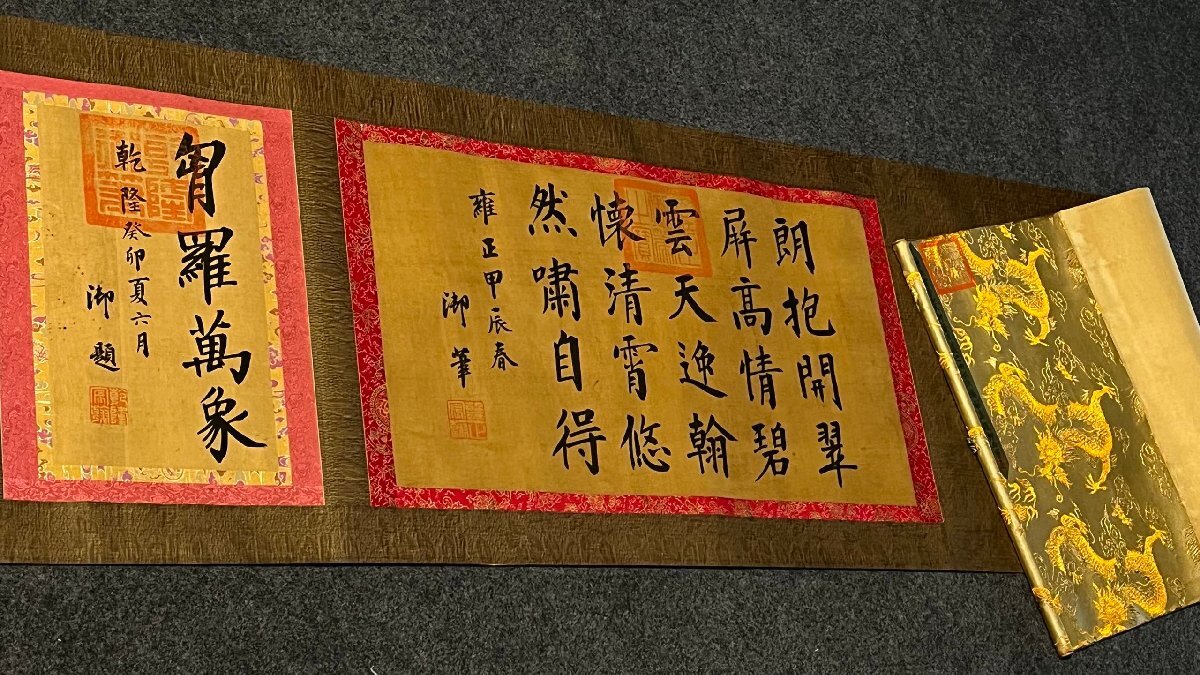 朗抱開翠
屏高情碧
雲天逸翰
懷清霄悠
然嘯自得
雍正甲辰春
御筆
胷羅萬象
乾隆癸卯夏六月
御題